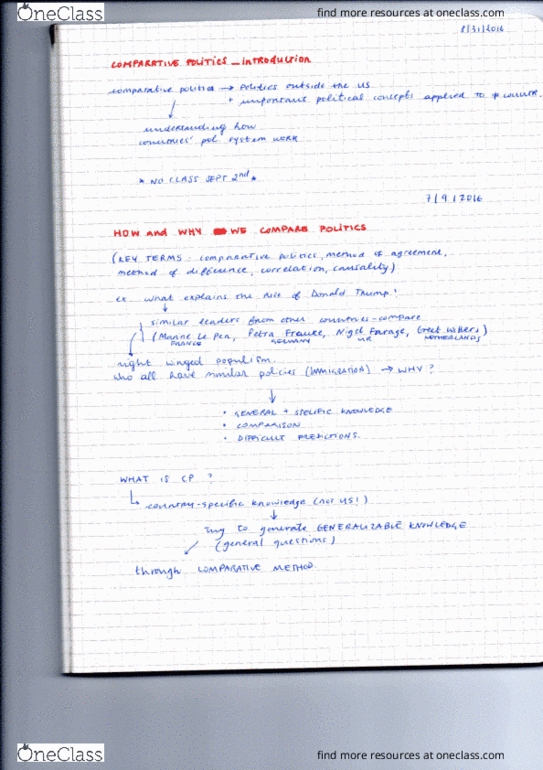 OneClass find more resources at oneclass.com
8/31/2016
COMPARATIVE POLITICS _ Introduction
comparative politics → Politics outside the US
+ important political concepts applied to
understanding how
countries' pol. system work
* NO CLASS SEPT 2nd *
7/9/2016
HOW and WHY WE COMPARE POLITICS
(KEY TERMS: comparative politics, method of agreement,
method of difference, correlation, causality)
ex. what explains the rise of Donald Trump?
similar leaders from other countries - compare
(Marine Le Pen, Petra Frauke, Nigel Farage, Geet Wilders)
FRANCE GERMANY UK NETHERLANDS
right winged populism.
who all have similar policies (IMMIGRATION) → WHY?
• GENERAL + SPECIFIC KNOWLEDGE
• COMPARISON
• DIFFICULT PREDICTIONS.
WHAT IS CP ?
country-specific knowledge (not US!)
Try to generate GENERALIZABLE KNOWLEDGE
(general questions)
through COMPARATIVE METHOD.
OneClass find more resources at oneclass.com